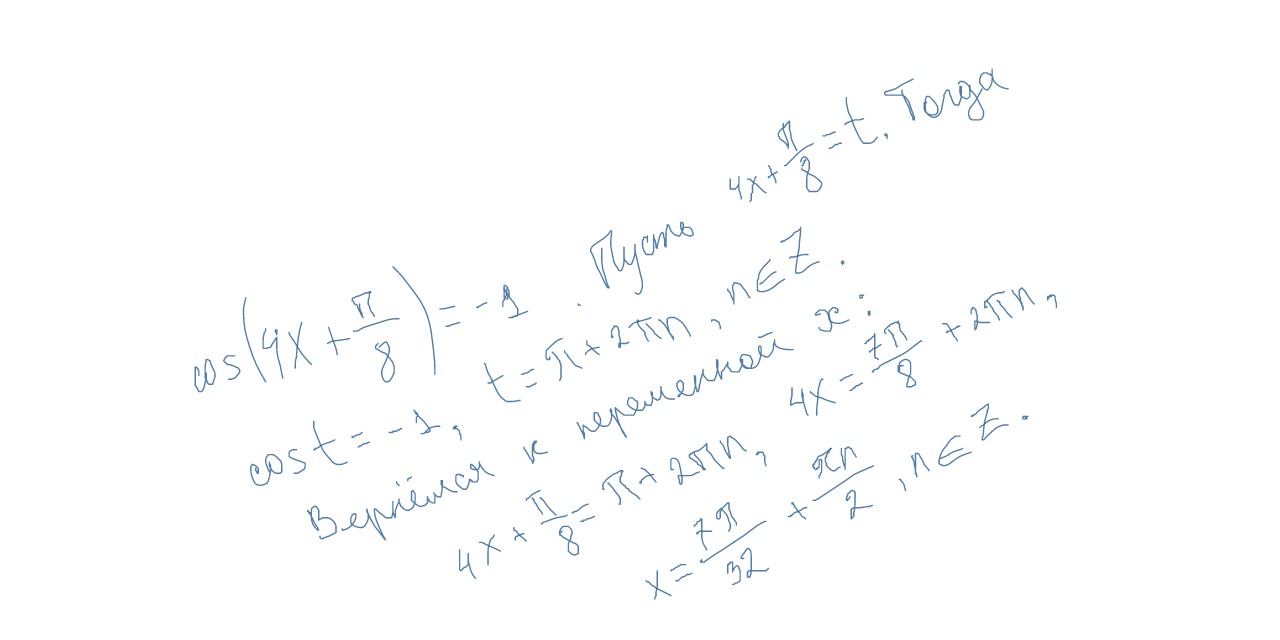 cos(4x + π/8) = -1 . Пусть 4x + π/8 = t. Тогда
cos t = -1, t = π + 2πn, n ∈ Z.
Вернёмся к переменной x:
4x + π/8 = π + 2πn, 4x = 7π/8 + 2πn,
x = 7π/32 + πn/2, n ∈ Z.